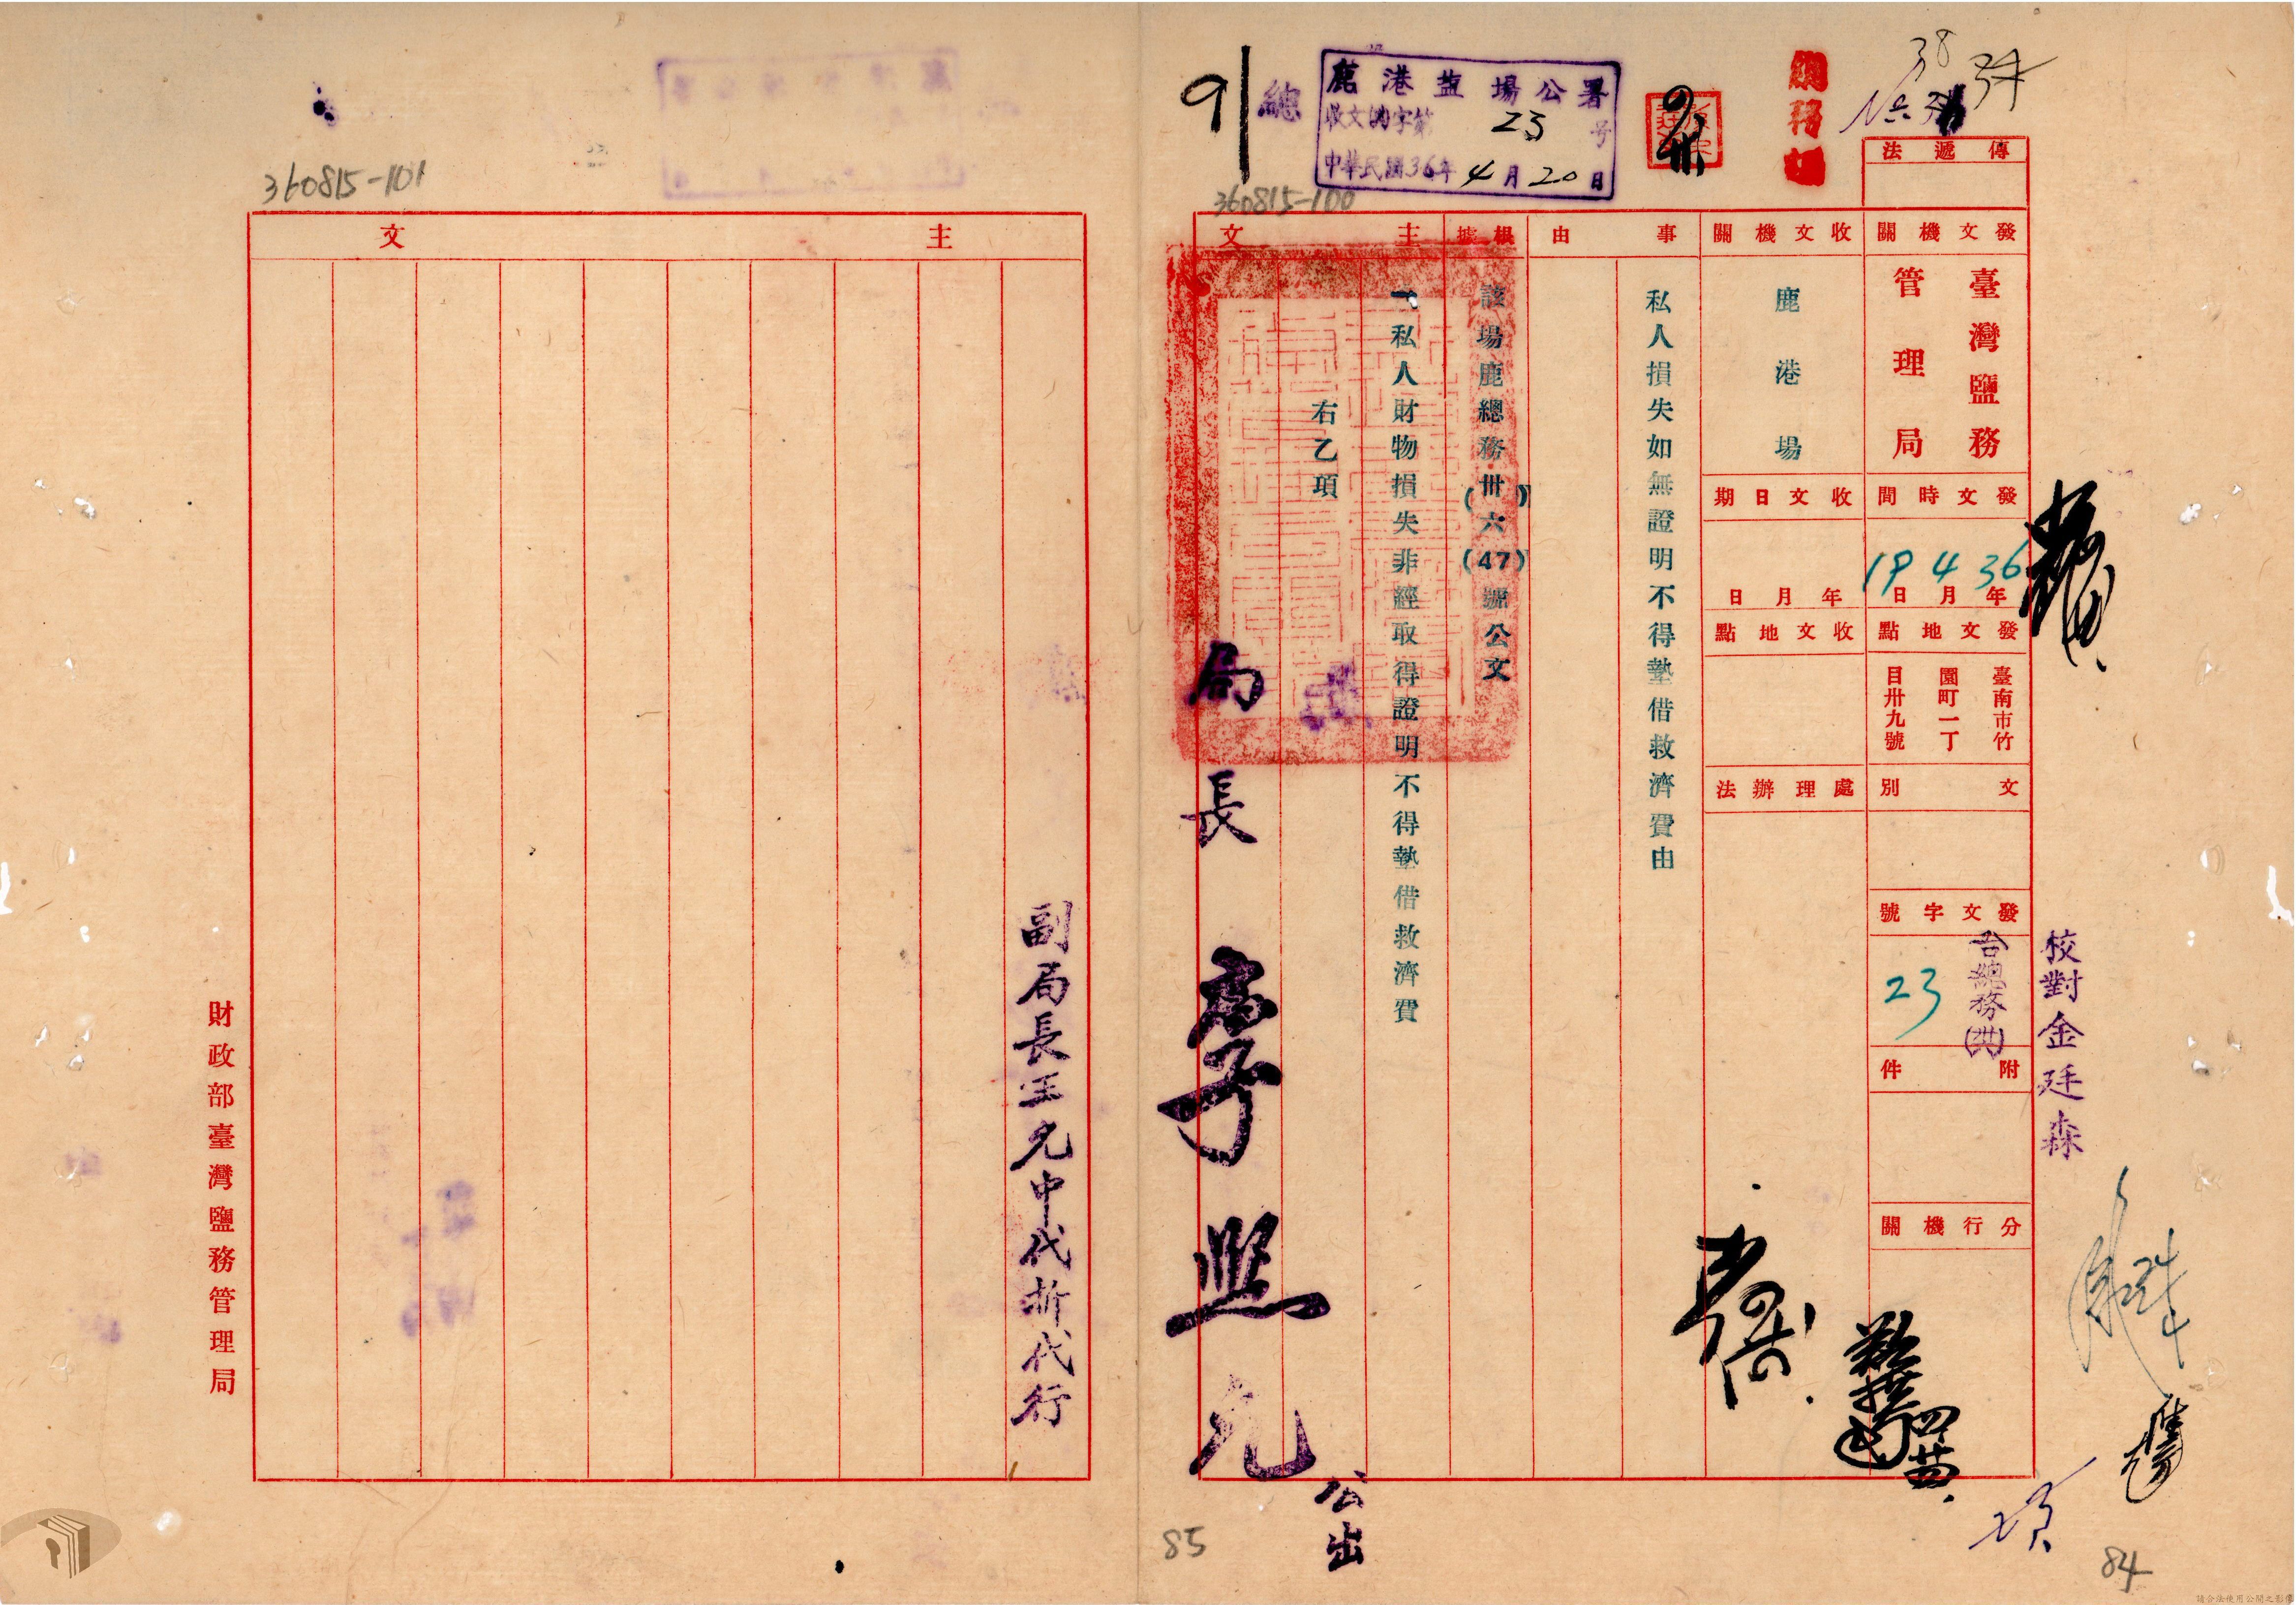 傳遞法
發文機關
臺灣鹽務
管理局
發文時間
36年4月19日
發文地點
臺南市竹
園町一丁
目卅九號
文別
發文字號
台總務(卅六)
23
附件
分行機關
收文機關
鹿港場
收文日期
年月日
收文地點
處理辦法
事由
私人損失如無證明不得墊借救濟費由
根據
該場鹿總務(卅六)(47)號公文
主文
一、私人財物損失非經取得證明不得墊借救濟費
右乙項
局長
公出
副局長王允中代拆代行
校對金廷森
總務
鹿港盐場公署
收文 字第23号
中華民國36年4月20日
總
91
38
360815-100
360815-101
主文
財政部臺灣鹽務管理局
85
84
請合法使用公開之影像